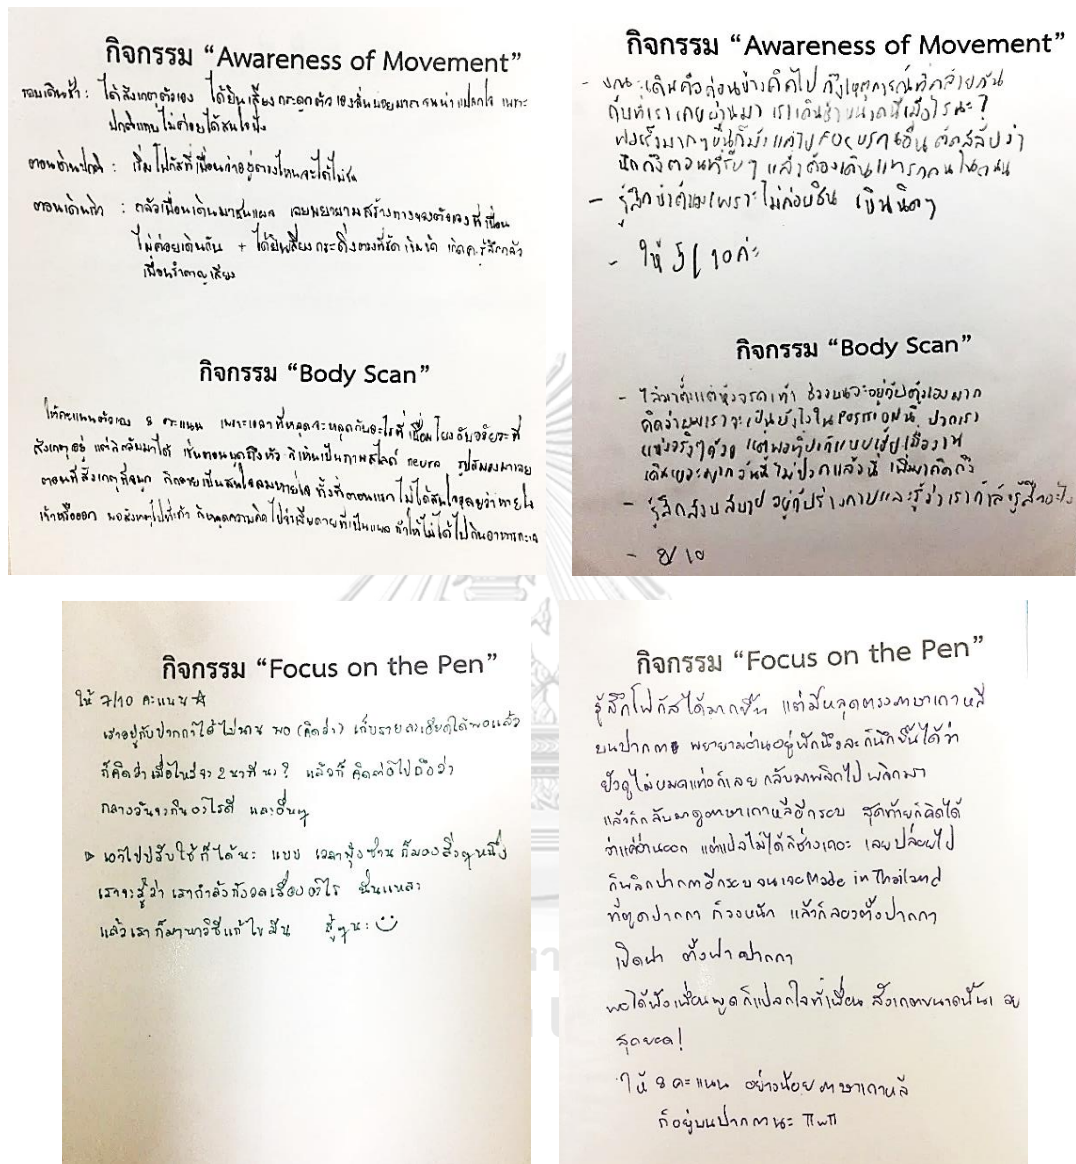 กิจกรรม “Awareness of Movement”
ตอนเดินช้า : ได้สังเกตตัวเอง ได้ยินเสียงกระดูกตัวเองลั่นบ่อยมากจนน่าแปลกใจ เพราะ
ปกติแทบไม่ค่อยได้สนใจฟัง
ตอนเดินปกติ : เริ่มโฟกัสที่เพื่อนว่าอยู่ตรงไหนจะได้ไม่ชน
ตอนเดินเร็ว : กลัวเพื่อนเดินมาชนแผล เลยพยายามสร้างทางของตัวเองที่เพื่อน
ไม่ค่อยเดินกัน + ได้ยินเสียงกระดิ่งตรงที่รัดข้อเท้า เกิดคห.รู้สึกกลัว
เพื่อนรำคาญเสียง
กิจกรรม “Body Scan”
ให้คะแนนตัวเอง 8 คะแนน เพราะเวลาที่หลุดจะหลุดกับอะไรที่เชื่อมโยงกับอวัยวะที่
สังเกตอยู่ แต่ก็กลับมาได้ เช่นตอนพูดถึงหัว ก็เห็นเป็นภาพสไลด์ neuro รูปสมองมาเลย
ตอนที่สังเกตที่จมูก ก็กลายเป็นสนใจลมหายใจ ทั้งที่ตอนแรกไม่ได้สนใจเลยว่าหายใจ
เข้าหรือออก พอสังเกตไปที่เท้า ก็หลุดความคิดไปว่าเสียดายที่เป็นแผล ทำให้ไม่ได้ไปกินอาหารทะเล
กิจกรรม “Awareness of Movement”
- ขณะเดินคือก่อนข้างคิดไป ถึงเหตุการณ์ที่คล้ายกัน
กับที่เราเคยผ่านมา เราเดินช้าขนาดนี้เมื่อไรนะ?
พอเร็วมากๆขึ้นก็มีแต่ไป focus คนอื่น ตัดสลับว่า
นึกถึงตอนที่รีบๆ แล้วต้องเดินแทรกคนในถนน
- รู้สึกช้าตัวเองเพราะไม่ค่อยชิน เขินนิดๆ
- ให้ 5/10ค่ะ
กิจกรรม “Body Scan”
- ไล่มาตั้งแต่หัวจรดเท้า ช่วงบนจะอยู่กับตัวเองมาก
คิดว่าเราจะเป็นยังไงใน position นี้ ปากเรา
แห้งจริงๆด้วย แต่พอ
เดินเยอะมาก วันนี้ไม่ปวดแล้วนี่ เพิ่งมาคิดถึง
- รู้สึกสงบสบาย อยู่กับร่างกายและรู้ว่าเรากำลังรู้สึกอะไร
- 8/10
กิจกรรม “Focus on the Pen”
ให้ 7/10 คะแนน ☆
เราอยู่กับปากกาได้ไม่นาน พอ (คิดว่า) เก็บรายละเอียดได้พอแล้ว
ก็คิดว่าเมื่อไหร่จะ 2 นาทีนะ? แล้วก็คิดต่อไปถึงว่า
กลางวันจะกินอะไรดี และอื่นๆ
▷ เอาไปปรับใช้ก็ได้นะ แบบ เวลาฟุ้งซ่าน ก็มองสิ่งๆหนึ่ง
เราจะรู้ว่า เรากำลังกังวลเรื่องอะไร นั่นแหละ
แล้วเราก็มาหาวิธีแก้ไขมัน สู้ๆนะ ☺
กิจกรรม “Focus on the Pen”
รู้สึกโฟกัสได้มากขึ้น แต่มีหลุดตรงภาษาเกาหลี
บนปากกา พยายามอ่านอยู่พักนึงละก็นึกขึ้นได้ว่า
ยังดูไม่หมดแท่งก็เลย กลับมาพลิกไป พลิกมา
แล้วก็กลับมาดูภาษาเกาหลีอีกรอบ สุดท้ายก็คิดได้
ว่าแค่อ่านออก แต่แปลไม่ได้ก็ช่างเถอะ เลยปล่อยไป
ก็พลิกปากกาอีกรอบจนเจอ Made in Thailand
ที่ตูดปากกา ก็วงหนัก แล้วก็ลองตั้งปากกา
เปิดฝา ตั้งฝาปากกา
พอได้ฟังเพื่อนพูดก็แปลกใจที่เพื่อน สังเกตขนาดนั้นเลย
สุดยอด!
ให้ 8 คะแนน อย่างน้อยภาษาเกาหลี
ก็อยู่บนปากกานะ ΠωΠ